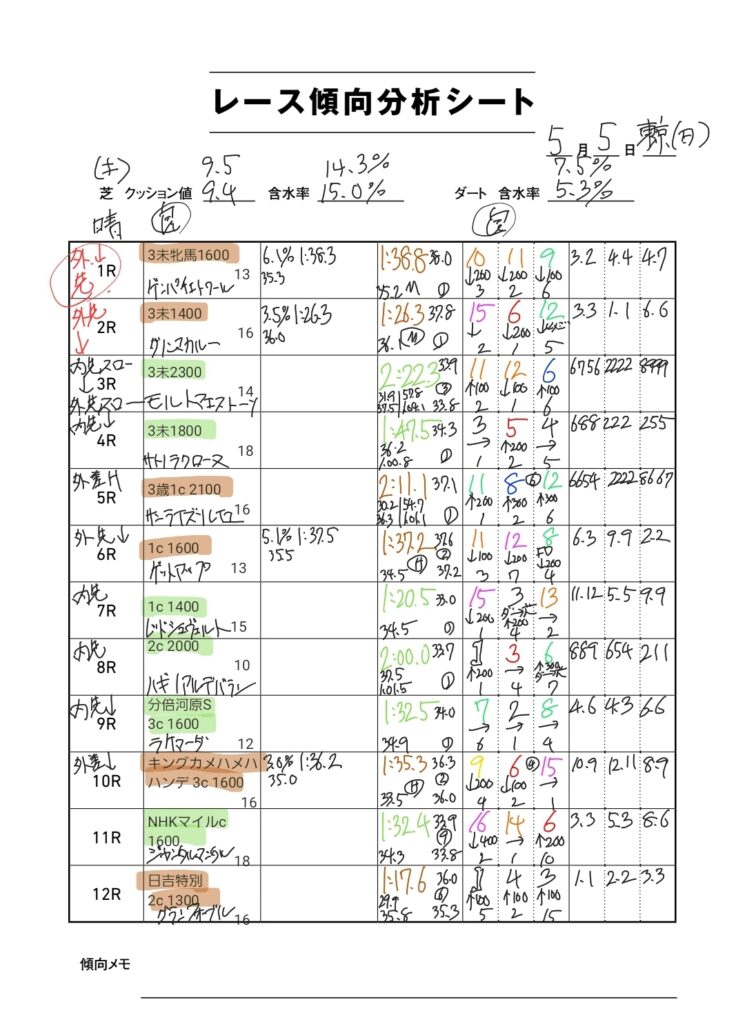 レース傾向分析シート
5月5日 東京(日)
(土) 9.5 14.3% 7.5%
芝 クッション値 9.4 含水率 15.0% ダート 含水率 5.3%
晴
外↓ 3未牝馬1600 6.1% 1:38.3 1:38.8 38.0 10 11 9 3.2 4.4 4.7
先 1R 13 35.3 ↓200 ↓200 ↓100
ゲンパイエトワール 35.2 M ① 3 2 6
外先 3未1400 3.5% 1:26.3 1:26.3 37.8 15 6 12 3.3 1.1 6.6
↓ 2R 16 36.0 ↓ ↓200
36.1 M ① 2 1 5
内先スロー 3未2300 2:22.3 33.9 11 12 6 6756 2222
↓ 3R 14 ③ ↑100 ↓100 ↑100
外先スロー モルトマエストーソ 33.8 2 1 6
内先↓ 3未1800 1:47.5 34.3 3 5 4 688 222 255
4R 18 36.2 → ↑200 →
サトノラクローヌ 1:00.8 ① 1 2 5
外差H 3歳1c 2100 2:11.1 37.1 11 8 12 6654 2222 8667
5R 16 ↑200 ↑300 ↑300
サンライズソレイユ ① 1 2 6
外先↓ 1c 1600 5.1% 1:37.5 1:37.2 37.6 11 12 8 6.3 9.9 2.2
6R 13 35.5 ② ↓100 ↓200 ↓200
ゲットアップ 34.5 H 37.2 3 7 4
内先 1c 1400 1:20.5 33.0 15 3 13 11.12 5.5 9.9
7R 15 ↓200 ↑200 →
レッドシュヴェルト 34.5 ① 1 4 2
内先 2c 2000 2:00.0 33.7 1 3 6 889 654 211
8R 10 37.5 ↑200 →
ハギノアルデバラン 1:01.5 ① 1 4 7
内先↓ 分倍河原S 1:32.5 34.0 7 2 8 4.6 4.3 6.6
9R 3c 1600 12 → → →
ラケマーダ 34.9 ① 6 1 4
外差↓ キングカメハメハ 3.6% 1:36.2 1:35.3 36.3 9 6 15 10.9 12.11 8.9
10R ハンデ 3c 1600 35.0 ② ↓200 ↓100 →
16 33.5 H 36.0 4 2 1
NHKマイルc 1:32.4 33.9 16 14 6 3.3 5.3 8.6
11R 1600 ⑨ ↓400 → ↑200
ジャンタルマンタル 18 34.3 33.8 2 1 10
日吉特別 1:17.6 36.0 1 4 3 1.1 2.2 3.3
12R 2c 1300 ↑100 ↑100 ↑100
グランフォーブル 16 35.8 35.3 5 2 15
傾向メモ